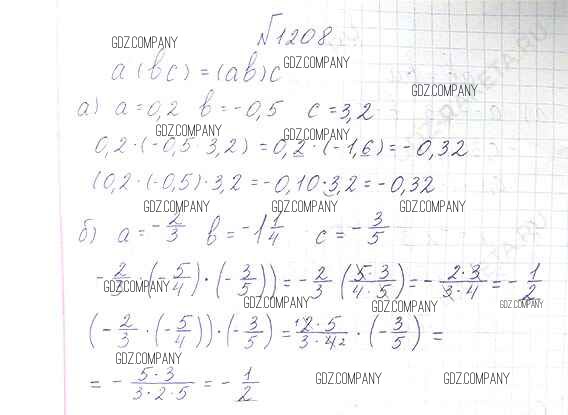 №1208
GDZ.COMPANY
a(bc)=(ab)c
GDZ.COMPANY GDZ.COMPANY
а) a=0,2 b=-0,5 c=3,2
GDZ.COMPANY GDZ.COMPANY
0,2·(-0,5·3,2)=0,2·(-1,6)=-0,32
(0,2·(-0,5)·3,2=-0,10·3,2=-0,32
GDZ.COMPANY GDZ.COMPANY GDZ.COMPANY
б) a=-2/3 b=-1 1/4 c=-3/5
-2/3·(-5/4)·(-3/5))=-2/3(5·3/4·5)=-2·3/3·4=-1/2
GDZ.COMPANY GDZ.COMPANY GDZ.COMPANY GDZ.COMPANY
(-2/3·(-5/4))·(-3/5)=¹2·5/3·4₂·(-3/5)=
GDZ.COMPANY
=-5·3/3·2·5=-1/2
GDZ.COMPANY GDZ.COMPANY